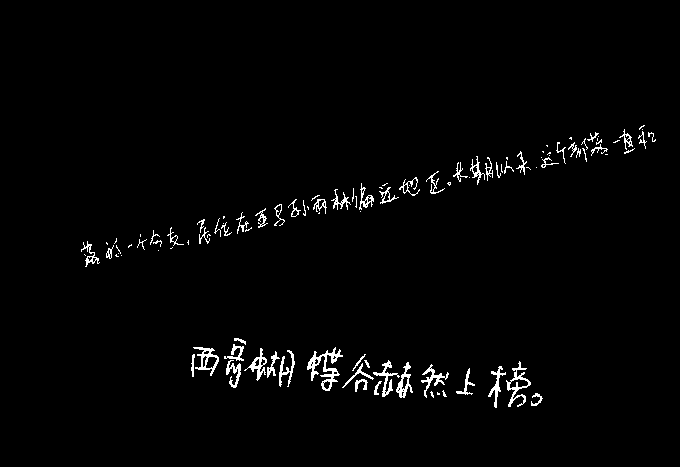 落的一个分支,居住在亚马孙雨林偏远地区。长期以来,这个部落一直和
西哥蝴蝶谷赫然上榜。